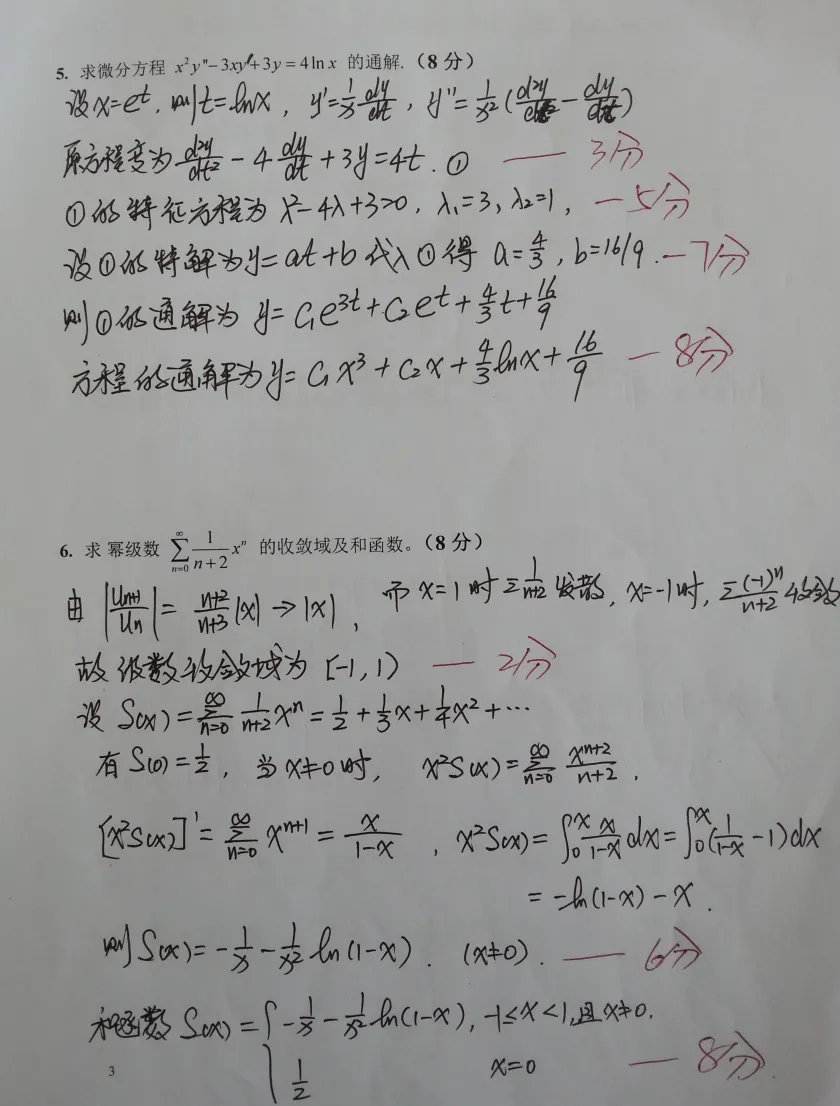 5. 求微分方程 x²y''-3xy'+3y=4ln x 的通解.(8分)
设x=e^t, 则t=lnx, y'=1/x dy/dt, y''=1/x²(d²y/dt²-dy/dt)
原方程变为 d²y/dt² - 4dy/dt + 3y=4t. ① —— 3分
①的特征方程为 λ²-4λ+3=0, λ₁=3, λ₂=1, —5分
设①的特解为y=at+b 代入①得 a=4/3, b=16/9. —7分
则①的通解为 y=C₁e^{3t}+C₂e^t+4/3t+16/9
方程的通解为y=C₁x³+C₂x+4/3lnx+16/9 —8分
6. 求 幂级数 ∑_{n=0}^{∞} 1/(n+2) x^n 的收敛域及和函数。(8分)
由 |U_{n+1}/U_n| = (n+2)/(n+3)|x| → |x|, 而x=1时∑1/(n+2)发散, x=-1时, ∑(-1)^n/(n+2)收敛
故级数收敛域为 [-1, 1) — 2分
设 S(x)=∑_{n=0}^{∞} 1/(n+2) x^n = 1/2+1/3x+1/4x²+⋯
有 S(0)=1/2, 当x≠0时, x²S(x)=∑_{n=0}^{∞} x^{n+2}/(n+2).
[x²S(x)]'=∑_{n=0}^{∞} x^{n+1} = x/(1-x), x²S(x)=∫₀^x x/(1-x) dx=∫₀^x(1/(1-x)-1)dx
= -ln(1-x)-x.
则S(x)=-1/x-1/x² ln(1-x). (x≠0). —— 6分
和函数 S(x)={ -1/x-1/x² ln(1-x), -1≤x<1,且x≠0.
1/2 x=0 —— 8分
3